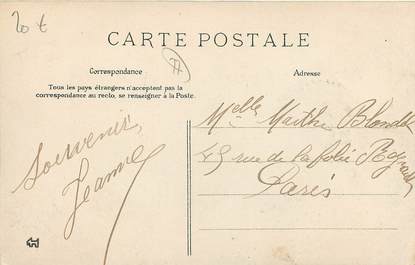 20 €
CARTE POSTALE
77
Correspondance
Adresse
Tous les pays étrangers n'acceptent pas la
correspondance au recto, se renseigner à la Poste.
Souvenir,
Jeanne
Melle Marthe
45 rue de la folie
Paris